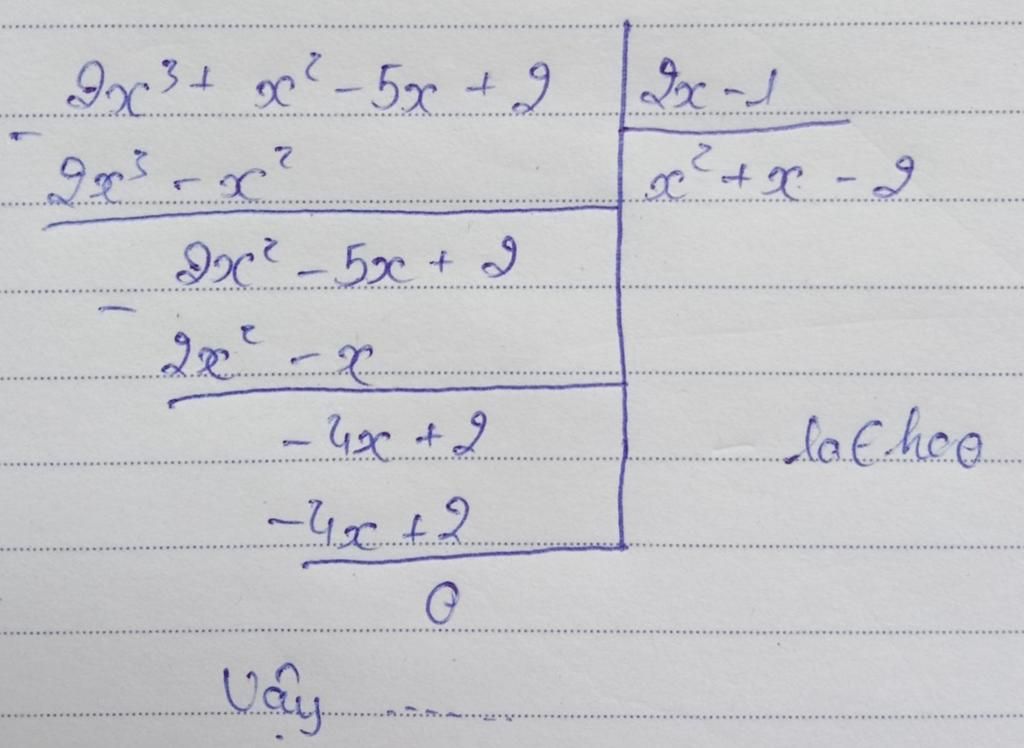 2x³ + x² - 5x + 2 | 2x - 1
- 2x³ - x² | x² + x - 2
2x² - 5x + 2
- 2x² - x
-4x + 2
-4x + 2
0
Vậy .......